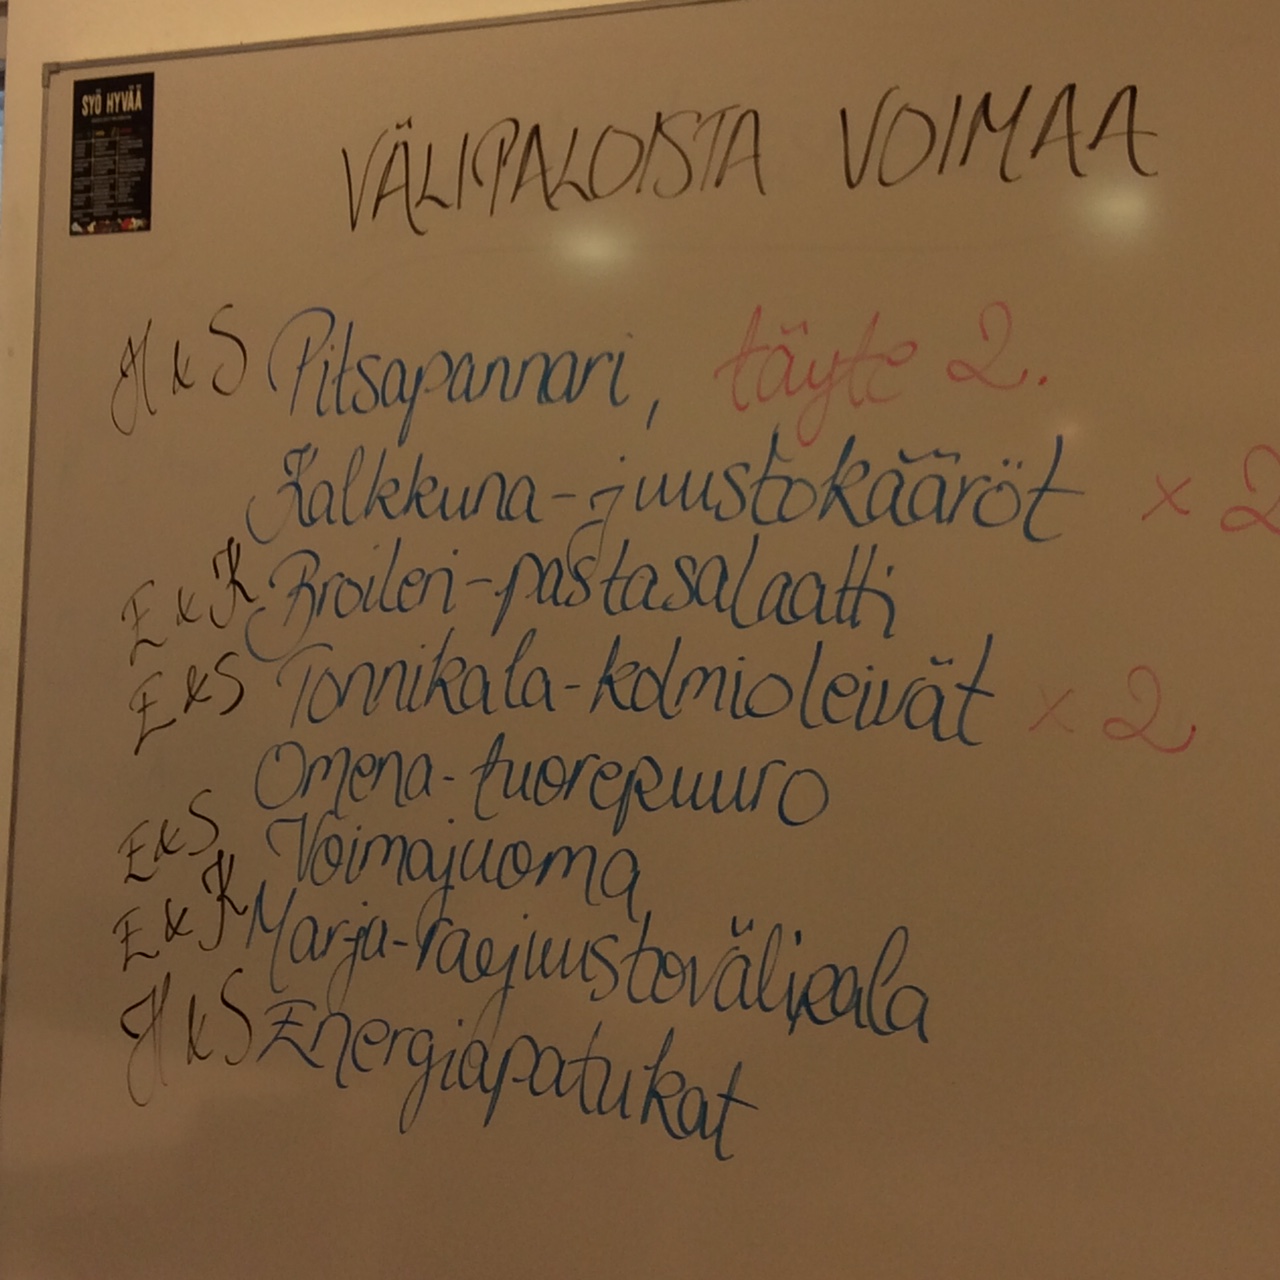 SYÖ HYVÄÄ
VÄLIPALOISTA VOIMAA
H & S Pitsapannari, täyte 2.
Kalkkuna-juustokääröt × 2
E & K Broileri-pastasalaatti
E & S Tonnikala-kolmioleivät × 2
Omena-tuorepuuro
E & S Voimajuoma
E & K Marja-raejuustovälipala
H & S Energiapatukat